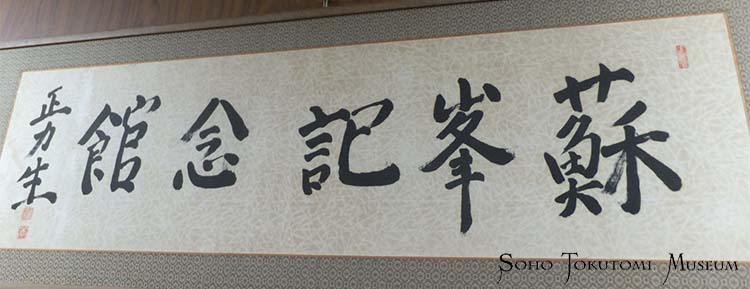 蘇峯記念館
正力生
Soho Tokutomi Museum